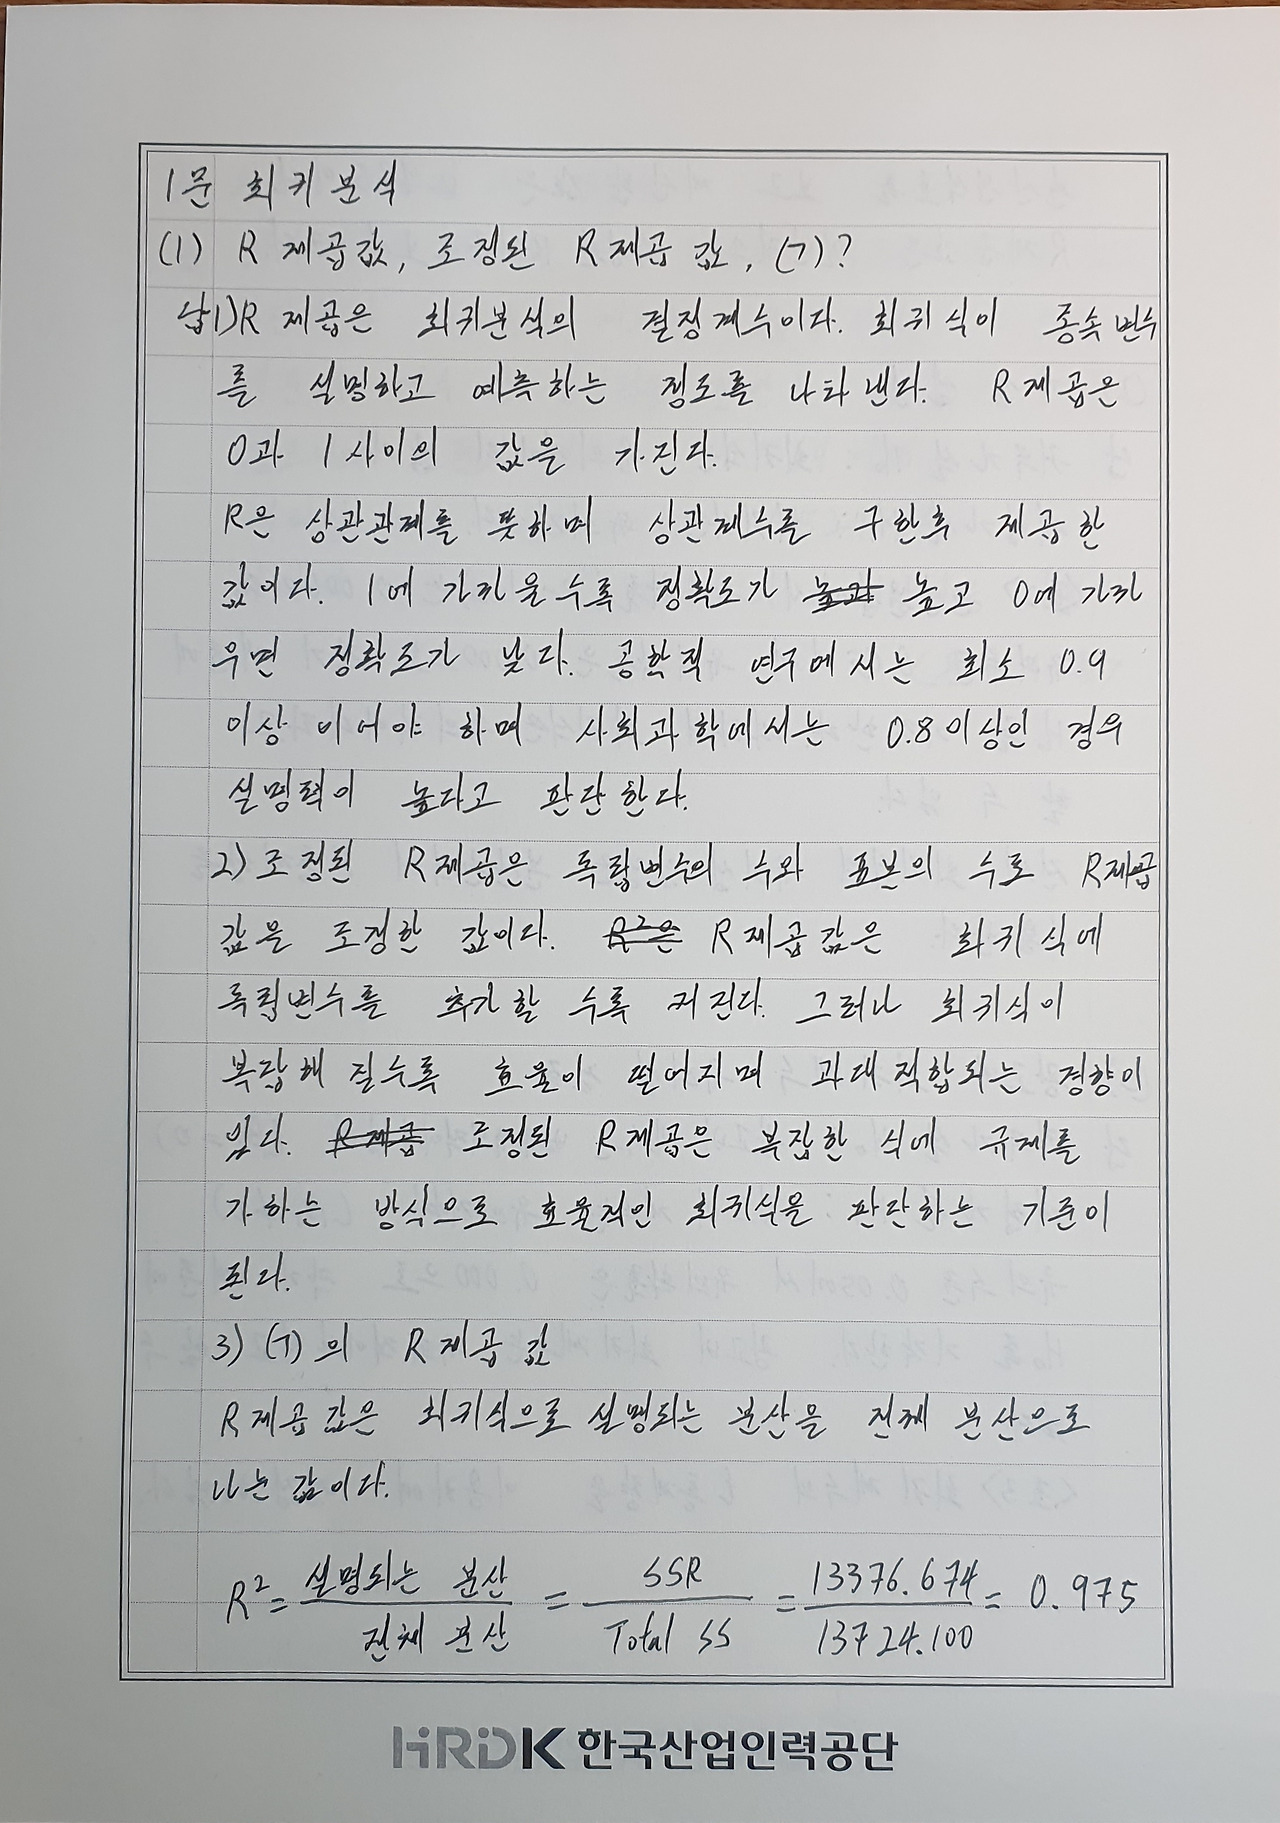 1문 회귀분석
(1) R 제곱값, 조정된 R 제곱 값, (ㄱ)?
답1)R 제곱은 회귀분석의 결정계수이다. 회귀식이 종속변수
를 설명하고 예측하는 정도를 나타낸다. R제곱은
0과 1사이의 값을 가진다.
R은 상관관계를 뜻하며 상관계수를 구한후 제곱한
값이다. 1에 가까울수록 정확도가 높고 0에 가까
우면 정확도가 낮다. 공학적 연구에서는 최소 0.9
이상 이어야 하며 사회과학에서는 0.8이상인 경우
설명력이 높다고 판단한다.
2) 조정된 R제곱은 독립변수의 수와 표본의 수로 R제곱
값을 조정한 값이다. R²은 R제곱값은 회귀식에
독립변수를 추가할 수록 커진다. 그러나 회귀식이
복잡해 질수록 효율이 떨어지며 과대적합되는 경향이
있다. R제곱 조정된 R제곱은 복잡한 식에 규제를
가하는 방식으로 효율적인 회귀식을 판단하는 기준이
된다.
3) (ㄱ)의 R제곱값
R제곱값은 회귀식으로 설명되는 분산을 전체 분산으로
나눈 값이다.
R² = 설명되는 분산 / 전체 분산 = SSR / Total SS = 13376.674 / 13724.100 = 0.975
HRDK 한국산업인력공단